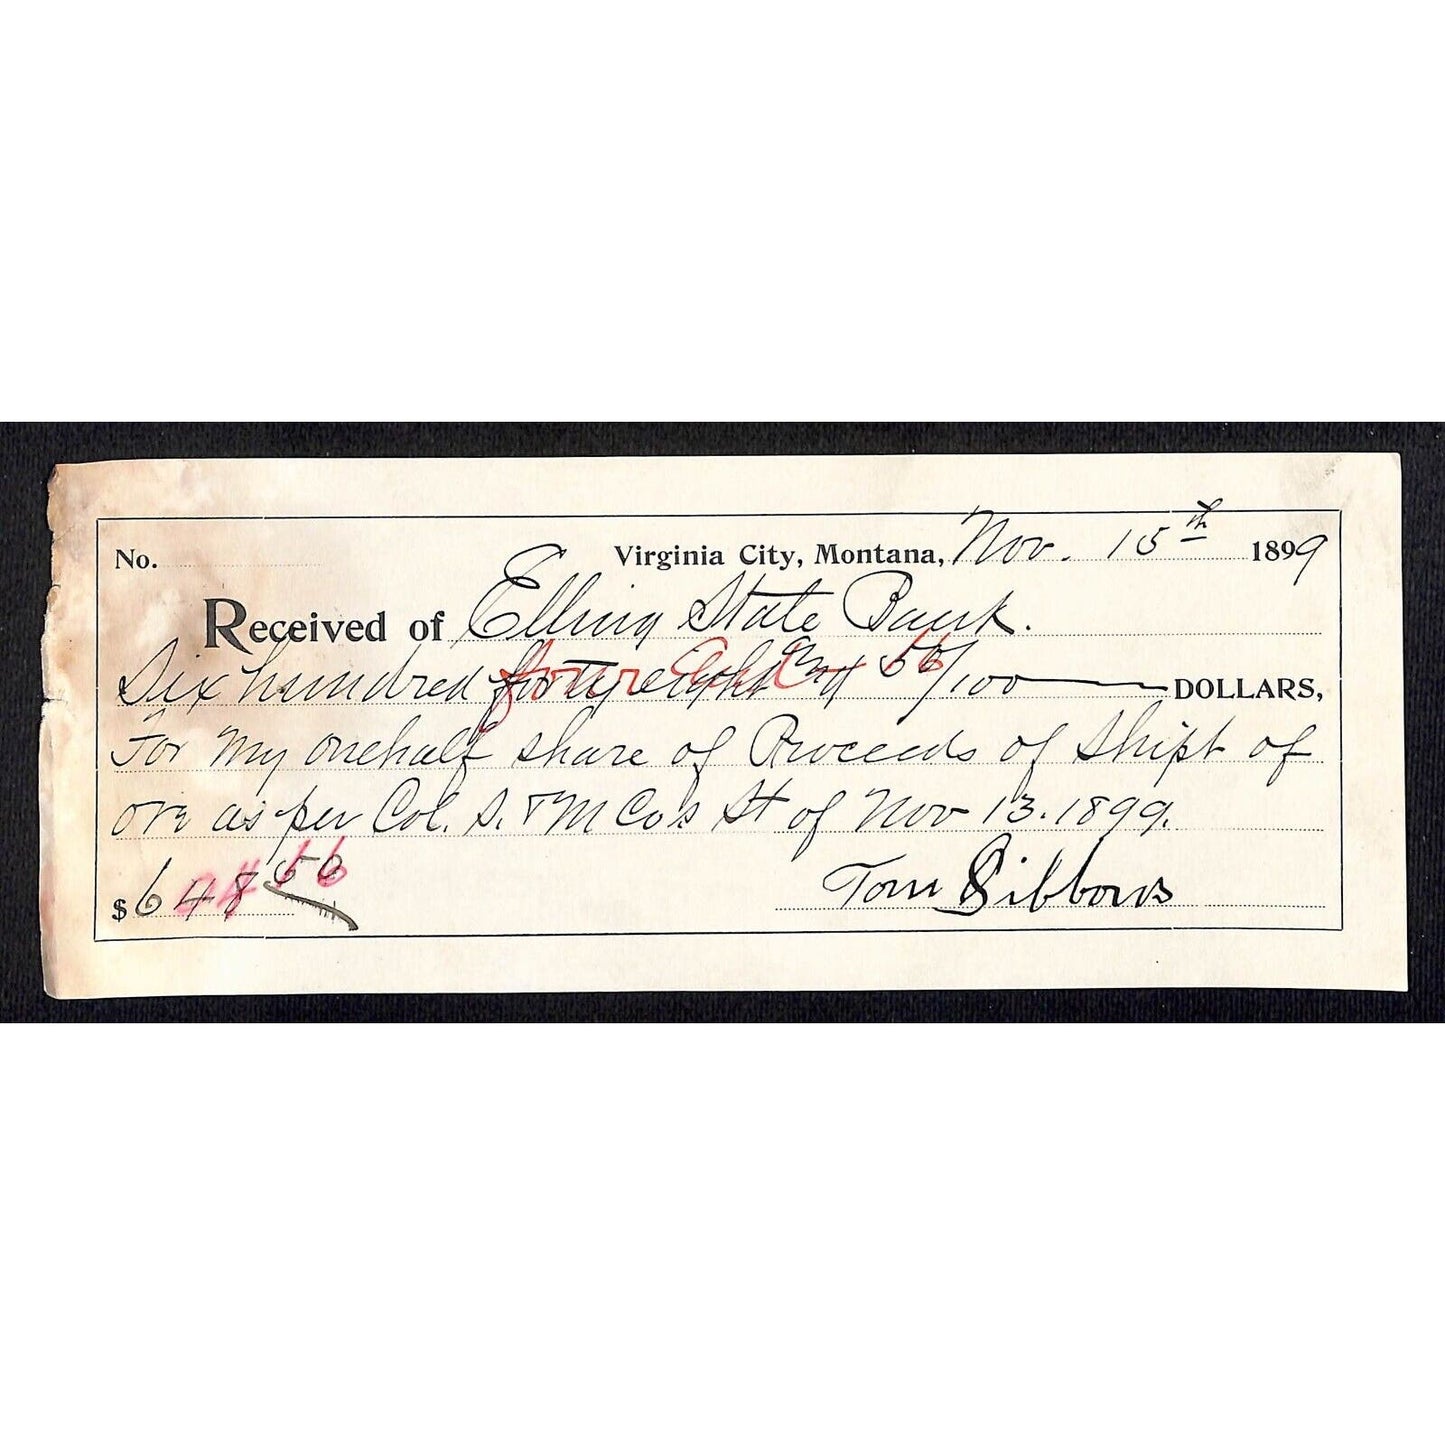 No. Virginia City, Montana, Nov. 15th 1899
Received of Elling State Bank.
Six hundred forty eight and 50/100 DOLLARS,
For my onehalf share of Proceeds of Shipt of
ore as per Col. S. & M Co's St of Nov 13. 1899.
$648 50
Tom Gibbons